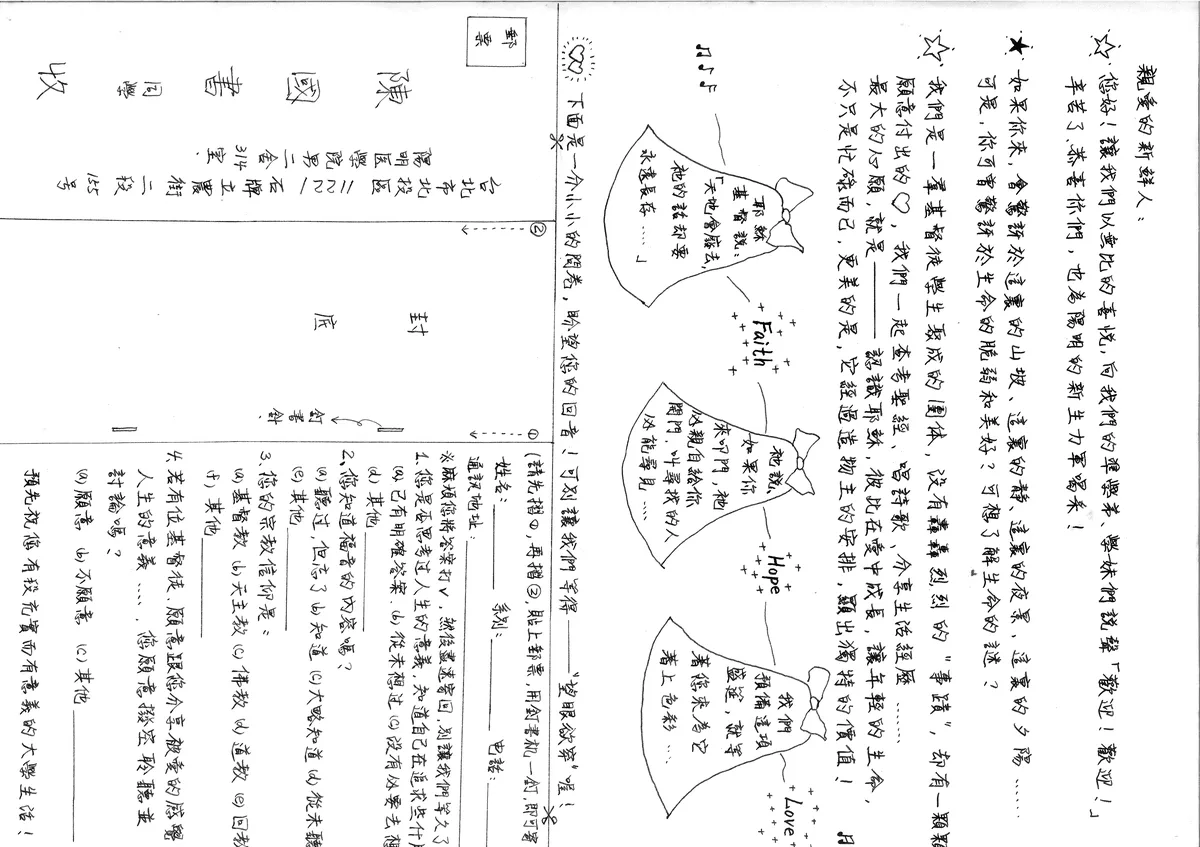 親愛的新鮮人：
☆ 您好！讓我們以無比的喜悅，向我們的學弟、學妹們說聲「歡迎！歡迎！」
辛苦了、恭喜你們，也為陽明的新生力軍喝采！
★ 如果你來，會驚訝於這裏的山坡、這裏的靜、這裏的夜景、這裏的夕陽……
可是，你可曾驚訝於生命的脆弱和美好？可想了解生命的謎？
☆ 我們是一羣基督徒學生聚成的團体，沒有轟轟烈烈的"事蹟"，却有一顆
願意付出的♡，我們一起查考聖經、唱詩歌、分享生活經歷………
最大的心願，就是——認識耶穌，彼此在愛中成長，讓年輕的生命，
不只是忙碌而已，更美的是，它經過造物主的安排，顯出獨特的價值！
耶穌
基督說：
「天地會廢去，
祂的話却要
永遠長存……」
Faith
祂說、
如果你
來叩門，祂
必親自給你
開門、叫尋找的人
必能尋見……
Hope
我們
預備這項
盛筵，就等
著您來為它
著上色彩…
Love
下面是一個小小的問卷，盼望您的回音！可別讓我們等得——"望眼欲穿"喔！
郵票
陳國書同學收
台北市北投區11221石牌立農街二段155号
陽明医學院男二舍314室
②
封底
釘書針
①
(請先摺①，再摺②，貼上郵票，用釘書机一釘，即可寄
姓名：＿＿＿ 系別：＿＿＿ 电話：＿＿＿
通訊地址：
※麻煩您將答案打v，然後盡速寄回，別讓我們等久了
1、您是否思考过人生的意義，知道自己在追求些什
(a)已有明確答案、(b)從未想过 (c)没有必要去想
(d)其他＿＿＿
2、您知道福音的內容嗎？
(a)聽过，但忘了 (b)知道 (c)大略知道 (d)從未聽
(e)其他＿＿＿
3、您的宗教信仰是：
(a)基督教 (b)天主教 (c)佛教 (d)道教 (e)回教
(f)其他＿＿＿
4、若有位基督徒、願意跟您分享被愛的感覺
人生的意義……、您願意撥空聆聽並
討論嗎？
(a)願意 (b)不願意 (c)其他＿＿＿
預先祝您有段充實而有意義的大學生活！